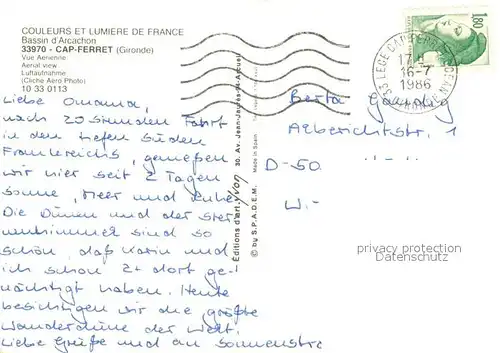 COULEURS ET LUMIERE DE FRANCE
Bassin d'Arcachon
33970 - CAP-FERRET (Gironde)
Vue Aerienne
Aerial view
Luftaufnahme
(Cliché Aéro Photo)
10 33 0113
Liebe Omama,
nach 20 stunden Fahrt
in den tiefen Süden
Frankreichs, genießen
wir hier seit 2 Tagen
Sonne, Meer und Ruhe.
Die Dünen und der Ster-
nenhimmel sind so
schön, daß Karin und
ich schon 2x dort ge-
nächtigt haben. Heute
besichtigen wir die größte
Wanderdüne der Welt.
Liebe Grüße und an sonnenstr
Editions d'art yvon 30, Av. Jean-Jaurès
Made in
© by S.P.A.D.E.M.
1,80
33 LEGE CAP FERRET
17
16-7
1986
GIRONDE
Berta
Alberichstr. 1
D-50
W.-
privacy protection